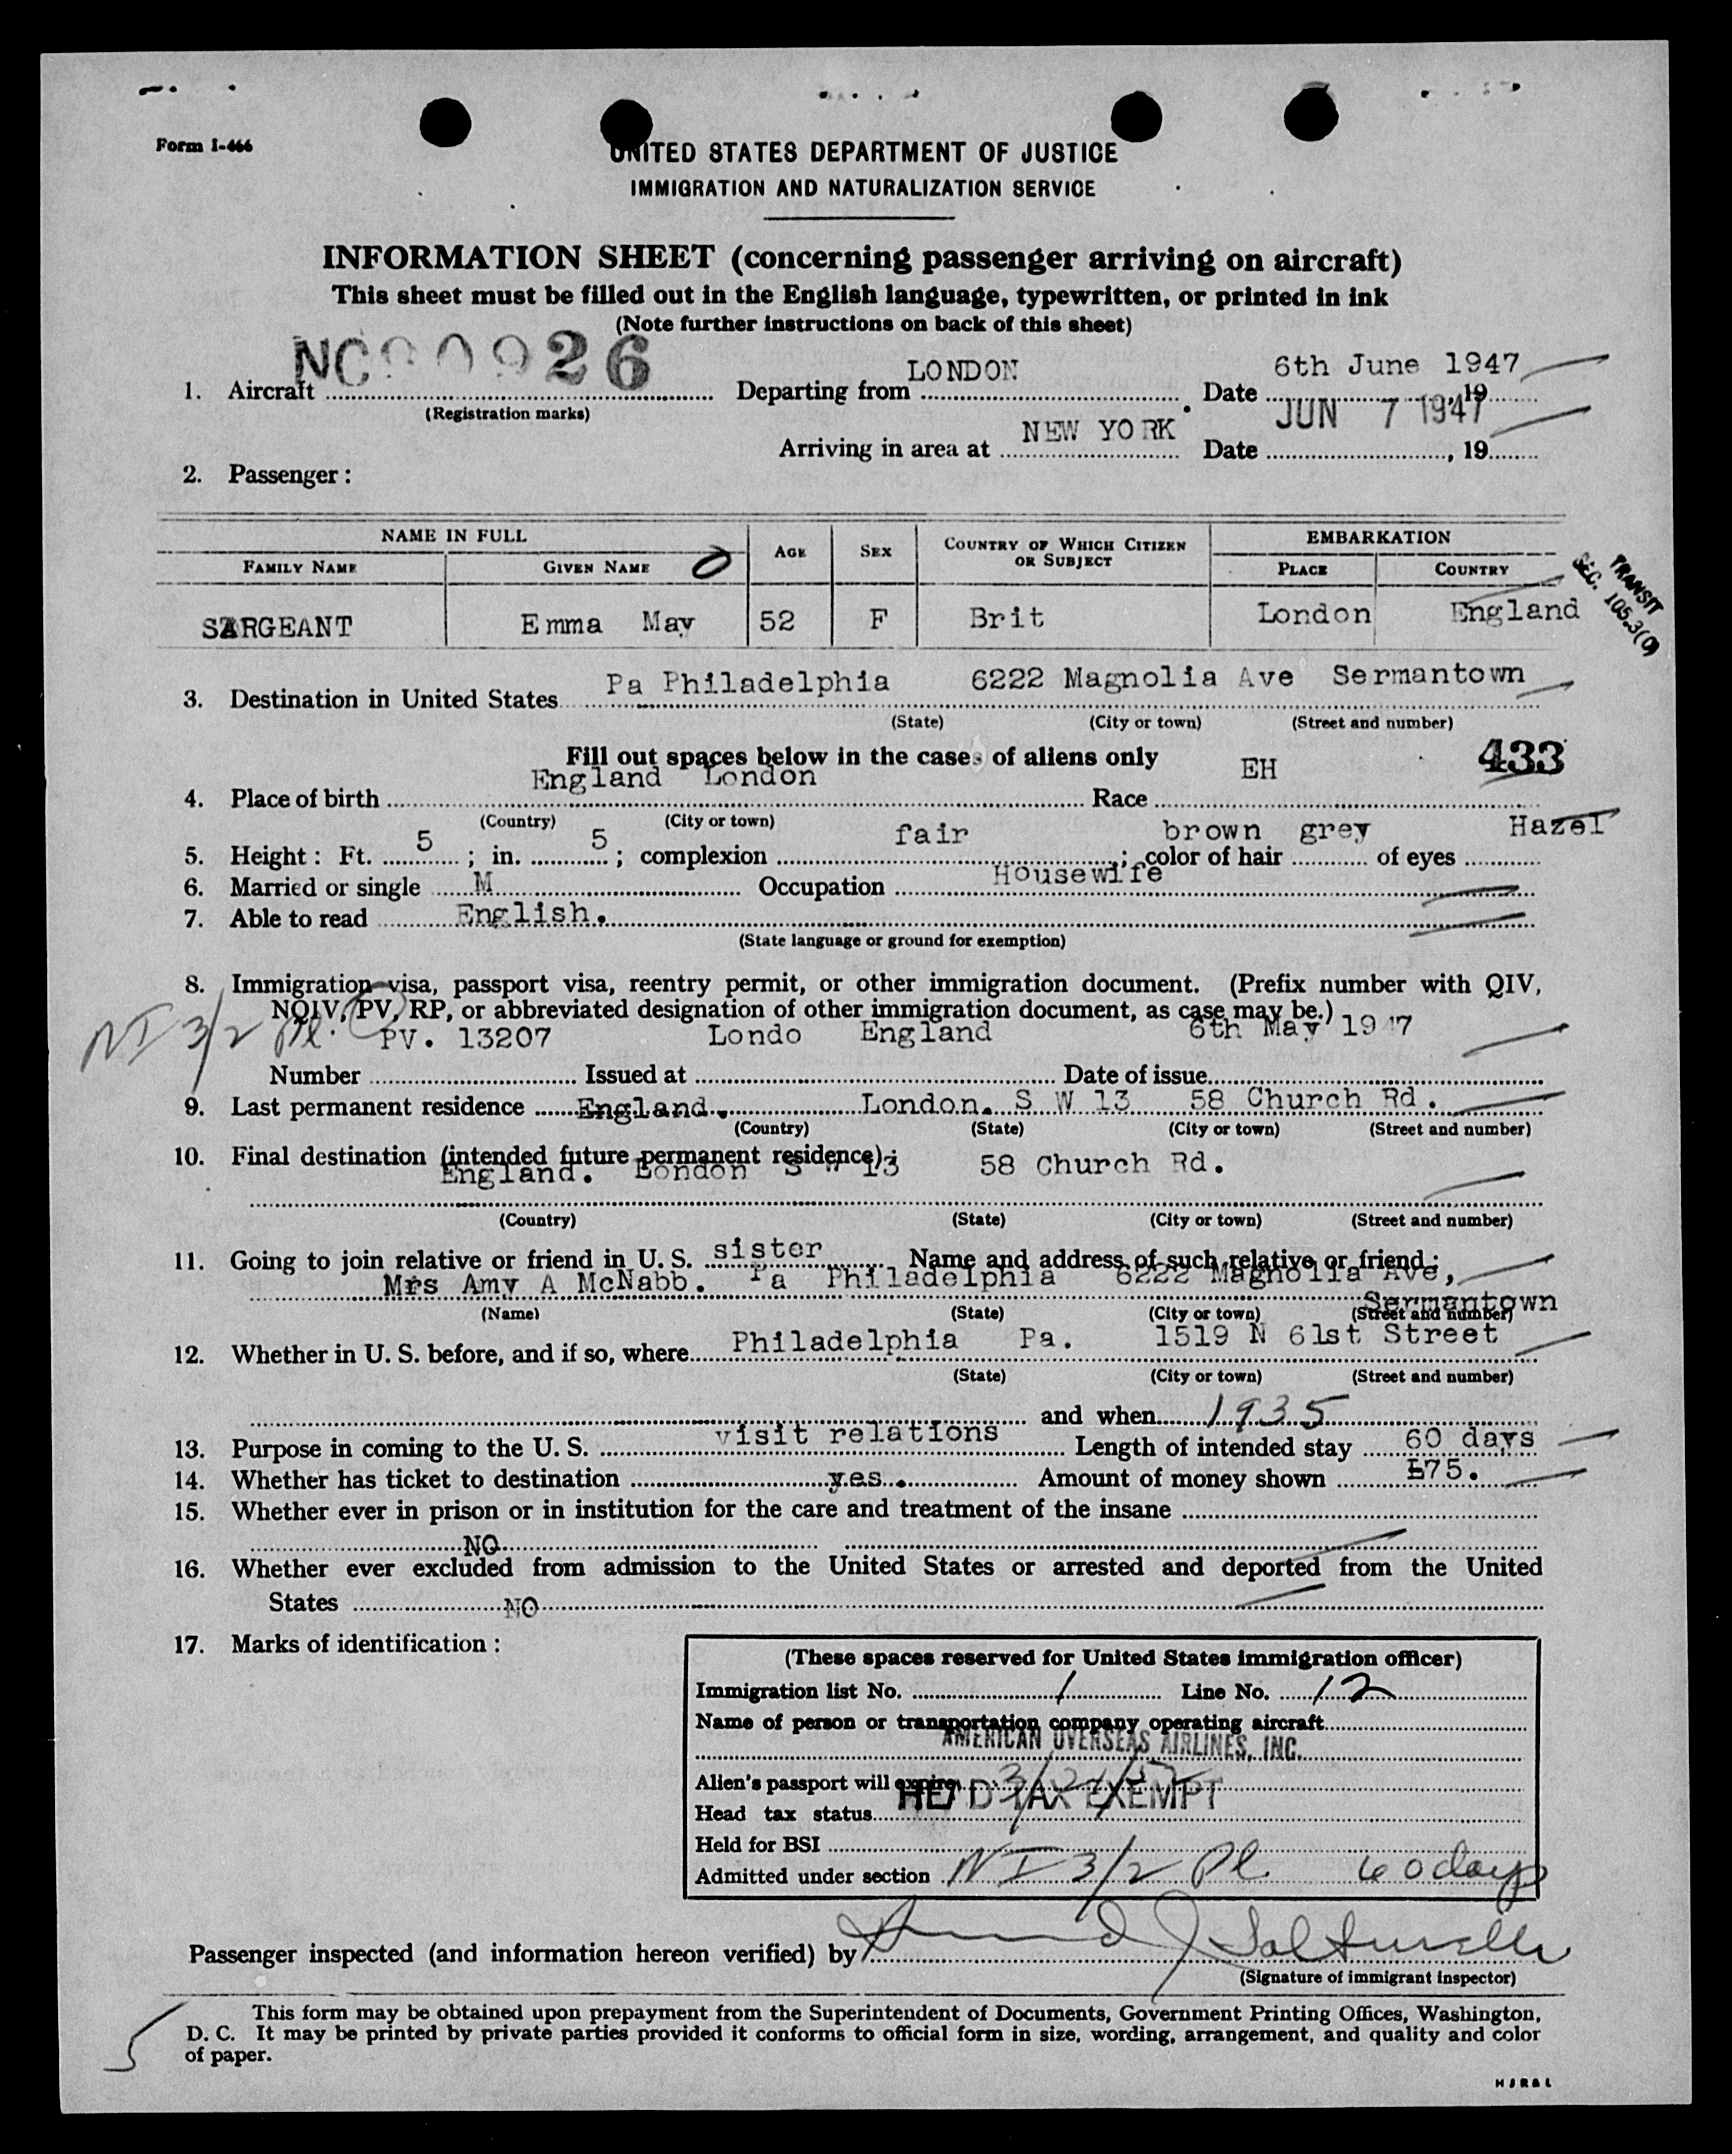 Form I-466
UNITED STATES DEPARTMENT OF JUSTICE
IMMIGRATION AND NATURALIZATION SERVICE
INFORMATION SHEET (concerning passenger arriving on aircraft)
This sheet must be filled out in the English language, typewritten, or printed in ink
(Note further instructions on back of this sheet)
1. Aircraft NC90926 Departing from LONDON Date 6th June 1947, 19
(Registration marks)
Arriving in area at NEW YORK Date JUN 7 1947, 19
2. Passenger:
NAME IN FULL AGE SEX COUNTRY OF WHICH CITIZEN OR SUBJECT EMBARKATION
FAMILY NAME GIVEN NAME PLACE COUNTRY
SARGEANT Emma May 52 F Brit London England
TRANSIT
SEC. 105.3(C)
3. Destination in United States Pa Philadelphia 6222 Magnolia Ave Sermantown
(State) (City or town) (Street and number)
Fill out spaces below in the case of aliens only 433
4. Place of birth England London Race EH
(Country) (City or town)
5. Height: Ft. 5; in. 5; complexion fair; color of hair brown grey of eyes Hazel
6. Married or single M Occupation Housewife
7. Able to read English.
(State language or ground for exemption)
8. Immigration visa, passport visa, reentry permit, or other immigration document. (Prefix number with QIV,
NQIV, PV, RP, or abbreviated designation of other immigration document, as case may be.)
NI 3/2 Pl. PV. 13207 Londo England 6th May 1947
Number Issued at Date of issue
9. Last permanent residence England. London. S W 13 58 Church Rd.
(Country) (State) (City or town) (Street and number)
10. Final destination (intended future permanent residence):
England. London S W 13 58 Church Rd.
(Country) (State) (City or town) (Street and number)
11. Going to join relative or friend in U. S. sister Name and address of such relative or friend:
Mrs Amy A McNabb. Pa Philadelphia 6222 Magnolia Ave,
Sermantown
(Name) (State) (City or town) (Street and number)
12. Whether in U. S. before, and if so, where Philadelphia Pa. 1519 N 61st Street
(State) (City or town) (Street and number)
and when 1935
13. Purpose in coming to the U. S. visit relations Length of intended stay 60 days
14. Whether has ticket to destination yes. Amount of money shown £75.
15. Whether ever in prison or in institution for the care and treatment of the insane
NO
16. Whether ever excluded from admission to the United States or arrested and deported from the United
States NO
17. Marks of identification:
(These spaces reserved for United States immigration officer)
Immigration list No. 1 Line No. 12
Name of person or transportation company operating aircraft
AMERICAN OVERSEAS AIRLINES, INC.
Alien's passport will expire 3/21/52
Head tax status HEAD TAX EXEMPT
Held for BSI
Admitted under section NI 3/2 Pl 60 days
Passenger inspected (and information hereon verified) by
(Signature of immigrant inspector)
This form may be obtained upon prepayment from the Superintendent of Documents, Government Printing Offices, Washington,
D. C. It may be printed by private parties provided it conforms to official form in size, wording, arrangement, and quality and color
of paper.
HJR&L